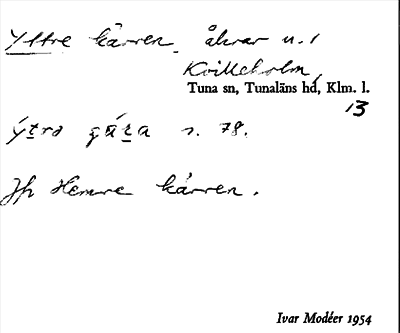 Yttre kärren, åkrar u. /
Kvilleholm,
Tuna sn, Tunaläns hd, Klm. l.
13
s. 78.
Jfr Hemre kärren.
Ivar Modéer 1954